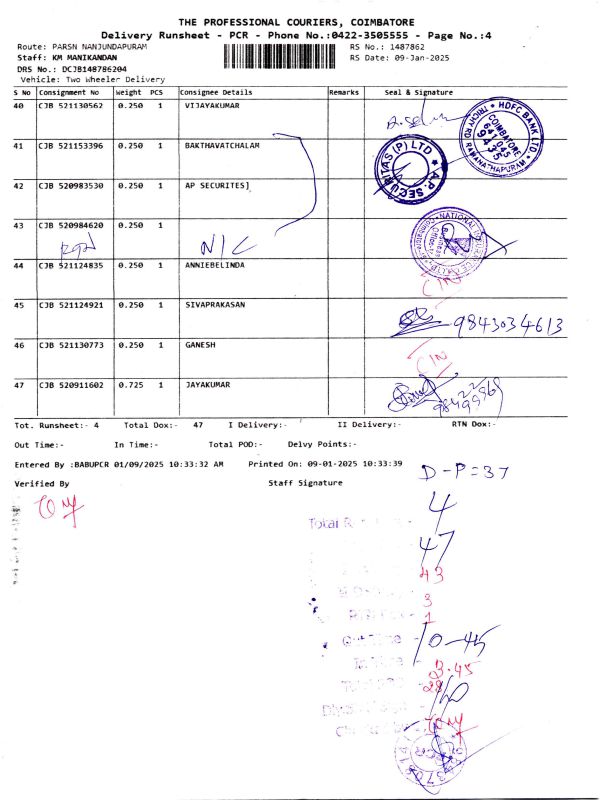 THE PROFESSIONAL COURIERS, COIMBATORE
Delivery Runsheet - PCR - Phone No.:0422-3505555 - Page No.:4
Route: PARSN NANJUNDAPURAM
RS No.: 1487862
Staff: KM MANIKANDAN
RS Date: 09-Jan-2025
DRS No.: DCJB148786204
Vehicle: Two Wheeler Delivery
S No Consignment No Weight PCS Consignee Details Remarks Seal & Signature
40 CJB 521130562 0.250 1 VIJAYAKUMAR
HDFC BANK LTD. COIMBATORE 641 045 9435 TRICHY RD RAMANATHAPURAM
41 CJB 521153396 0.250 1 BAKTHAVATCHALAM
A.P. SECURITAS (P) LTD
42 CJB 520983530 0.250 1 AP SECURITES]
43 CJB 520984620 0.250 1
RTN N/C
44 CJB 521124835 0.250 1 ANNIEBELINDA
C/N
45 CJB 521124921 0.250 1 SIVAPRAKASAN
9843034613
46 CJB 521130773 0.250 1 GANESH
C/N
47 CJB 520911602 0.725 1 JAYAKUMAR
Tot. Runsheet:- 4 Total Dox:- 47 I Delivery:- II Delivery:- RTN Dox:-
Out Time:- In Time:- Total POD:- Delvy Points:-
Entered By :BABUPCR 01/09/2025 10:33:32 AM Printed On: 09-01-2025 10:33:39
D-P=37
Verified By Staff Signature
4
47
43
3
1
Out Time - 10-45
3.45
28